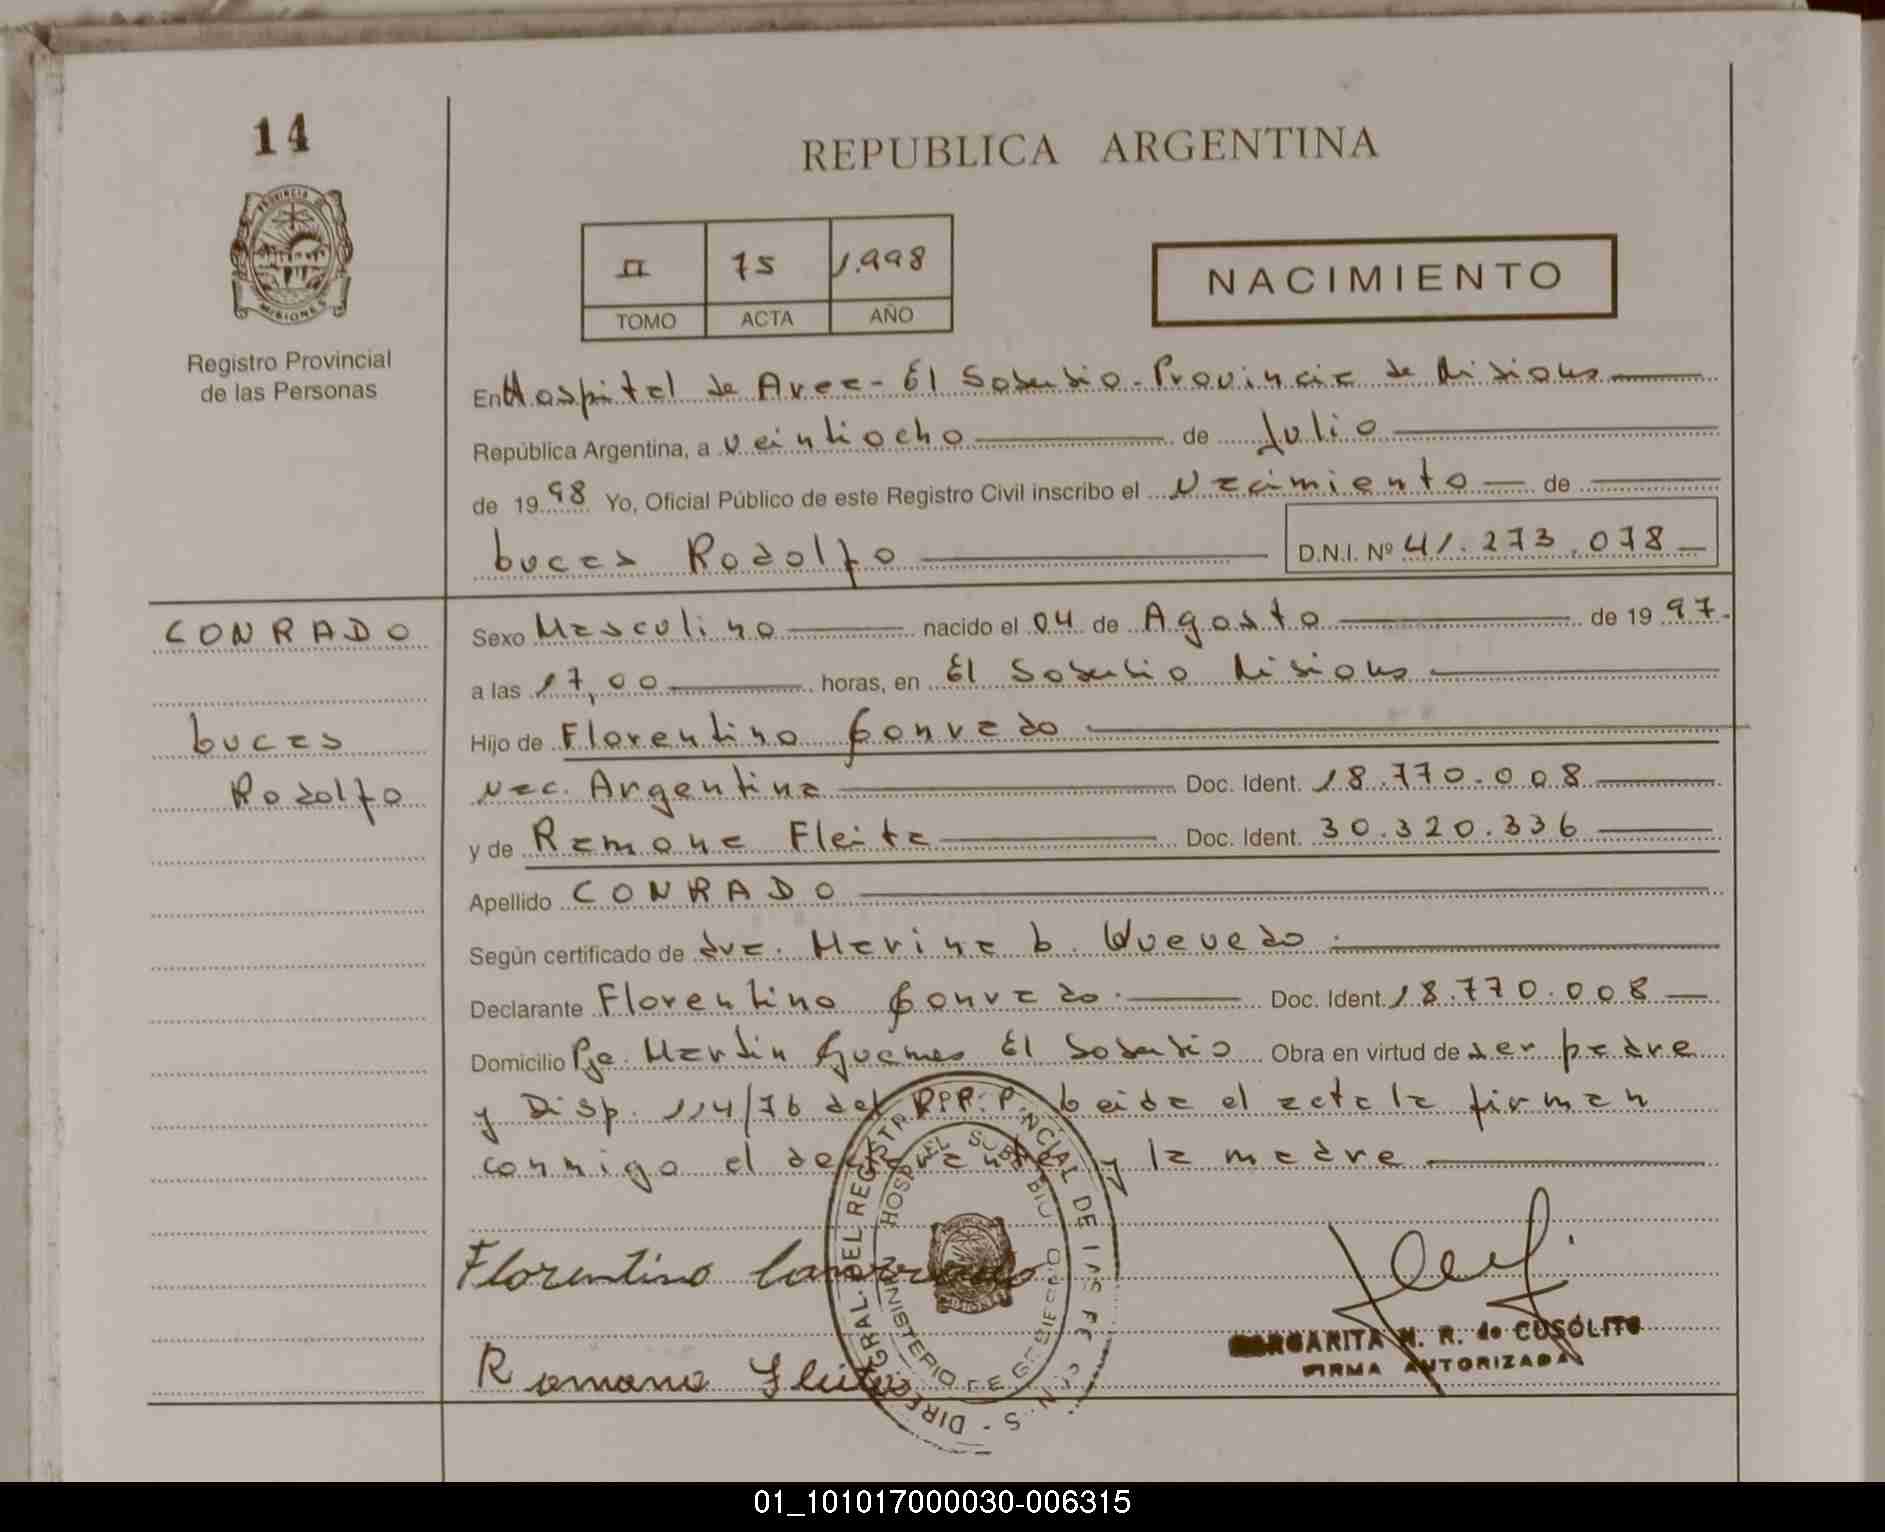 14
REPUBLICA ARGENTINA
PROVINCIA DE
MISIONES
II 75 1.998
TOMO ACTA AÑO
NACIMIENTO
Registro Provincial
de las Personas
En Hospital de Area - El Soberbio - Provincia de Misiones
República Argentina, a veintiocho de Julio
de 1998 Yo, Oficial Público de este Registro Civil inscribo el Nacimiento de
Lucas Rodolfo D.N.I. Nº 41.273.078
CONRADO
Lucas
Rodolfo
Sexo Masculino nacido el 04 de Agosto de 1997.
a las 17,00 horas, en El Soberbio Misiones
Hijo de Florentino Conrado
Nac. Argentina Doc. Ident. 18.770.008
y de Ramona Fleita Doc. Ident. 30.320.336
Apellido CONRADO
Según certificado de dra. Marina L. Quevedo.
Declarante Florentino Conrado. Doc. Ident. 18.770.008
Domicilio Pje. Martin Guemes El Soberbio Obra en virtud de ser padre
y Disp. 114/76 del R.P.P. Leida el acta la firman
conmigo el declarante y la madre
Florentino Conrado
Ramona Fleita
DIREC. GRAL. DEL REGISTR PNCIAL DE LAS PE
HOSP. EL SOBERBIO
MINISTERIO DE GOBIERNO
MISIONES
MARGARITA N. R. de CUSOLITO
FIRMA AUTORIZADA
01_101017000030-006315